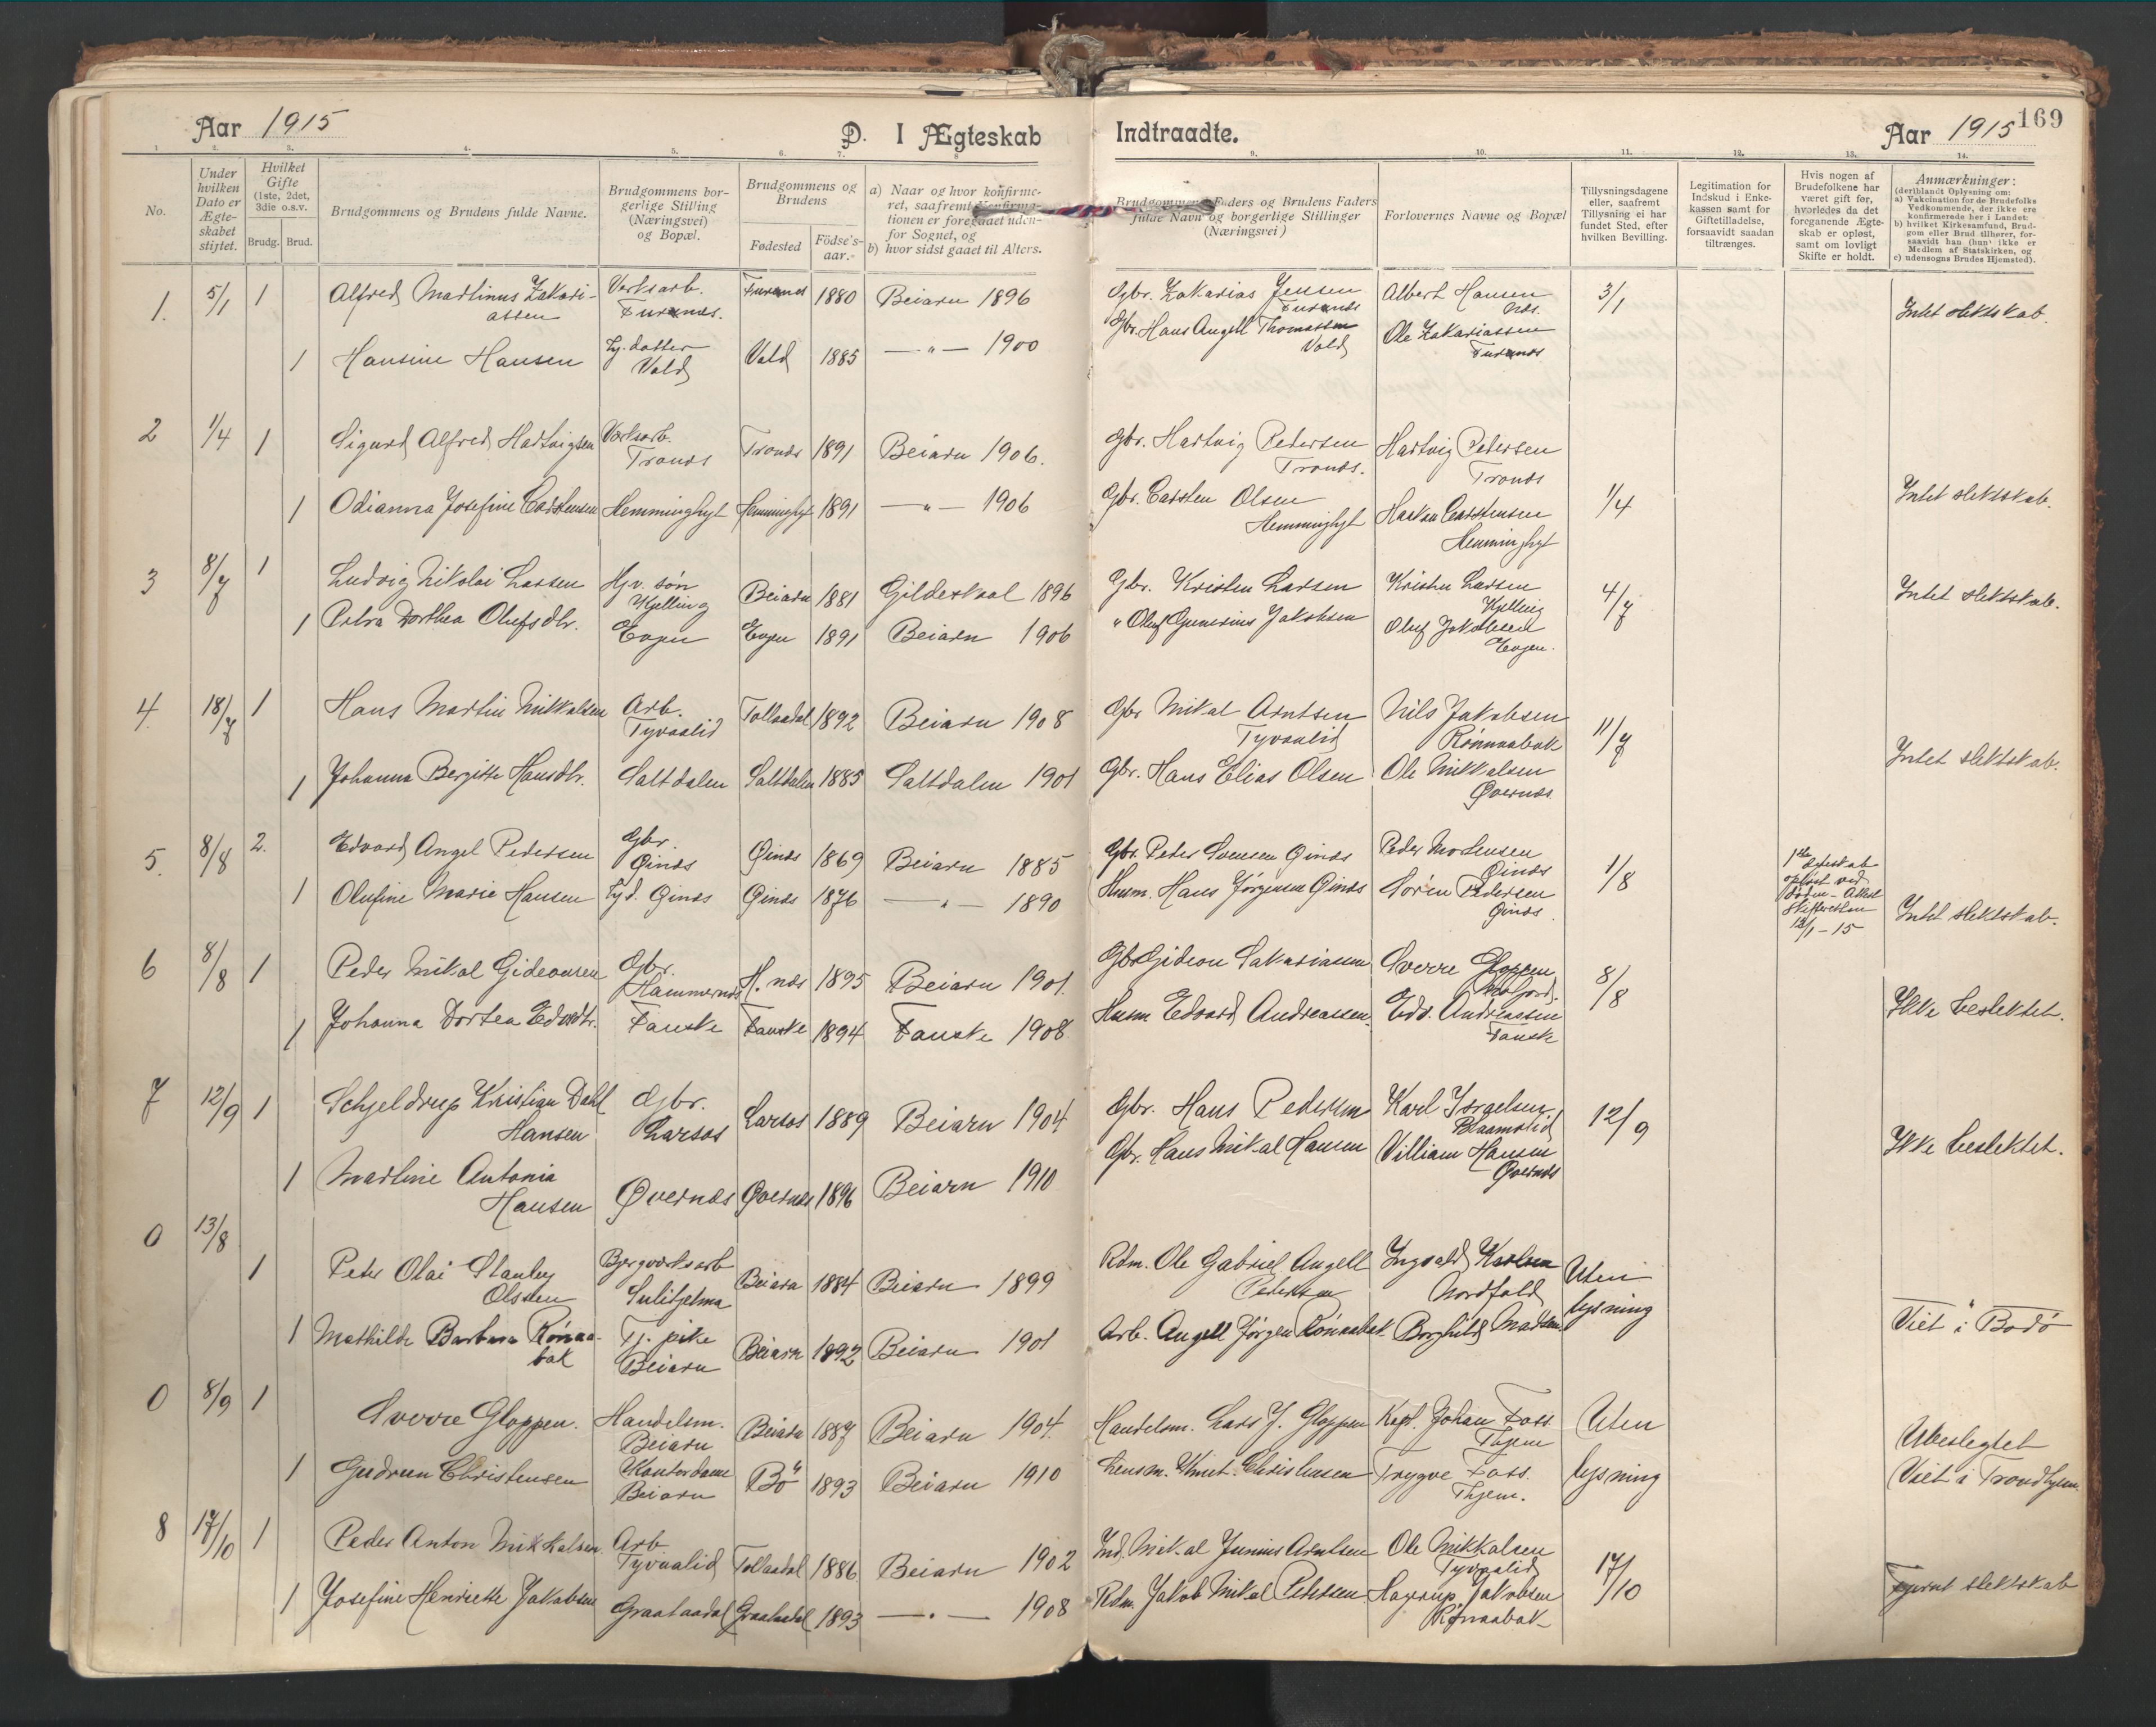 Aar 1915
D. I Ægteskab
Indtraadte.
Aar 1915
169
1.
2.
3.
4.
5.
6.
7.
8.
9.
10.
11.
12.
13.
14.
No.
Under
hvilken
Dato er
Ægte-
skabet
stiftet.
Hvilket
Gifte
(1ste, 2det,
3die o.s.v.
Brudg.
Brud.
Brudgommens og Brudens fulde Navne.
Brudgommens bor-
gerlige Stilling
(Næringsvei)
og Bopæl.
Brudgommens og
Brudens
Fødested
Födse's-
aar.
a) Naar og hvor konfirme-
ret, saafremt Konfirma-
tionen er foregaaet uden-
for Sognet, og
b) hvor sidst gaaet til Alters.
Brudgommens Faders og Brudens Faders
fulde Navn og borgerlige Stillinger
(Næringsvei)
Forlovernes Navne og Bopæl
Tillysningsdagene
eller, saafremt
Tillysning ei har
fundet Sted, efter
hvilken Bevilling.
Legitimation for
Indskud i Enke-
kassen samt for
Giftetilladelse,
forsaavidt saadan
tiltrænges.
Hvis nogen af
Brudefolkene har
været gift før,
hvorledes da det
foregaaende Ægte-
skab er opløst,
samt om lovligt
Skifte er holdt.
Anmærkninger:
(deriblandt Oplysning om:
a) Vakcination for de Brudefolks
Vedkommende, der ikke ere
konfirmerede her i Landet:
b) hvilket Kirkesamfund, Brud-
gom eller Brud tilhører, for-
saavidt han (hun) ikke er
Medlem af Statskirken, og
c) udensogns Brudes Hjemsted).
1. 5/1 1 Alfred Martinus Zakari-
assen
Verksarb.
Furunes.
Furunes 1880 Beiarn 1896
Gbr. Zakarias Jensen
Furunes
Albert Hansen
nes.
3/1
Intet slektskab.
1 Hansine Hansen
Tj. datter
Vold
Vold 1885 — " — 1900
Gbr. Hans Angell Thomassen
Vold
Ole Zakariassen
Furunes
2 1/4 1 Sigurd Alfred Hartvigsen
Verksarb.
Trones
Trones 1891 Beiarn 1906.
Gbr. Hartvig Pedersen
Trones.
Hartvig Pedersen
Trones
1 Odianna Josefine Carstensen Hemminghyt Hemminghyt 1891 — " — 1906
Gbr. Carsten Olsen
Hemminghyt
Haakon Carstensen
Hemminghyt
1/4
Intet slektskab.
3 8/7 1 Ludvig Nikolai Larsen
Gbr. søn
Kjelling
Beiarn 1881 Gildeskaal 1896
Gbr. Kristen Larsen
Kristen Larsen
Kjelling
4/7
Intet slektskab.
1 Petra Dorthea Olufsdtr. Evjen Evjen 1891 Beiarn 1906
" Oluf Gunerius Jakobsen
Oluf Jakobsen
Evjen.
4. 18/7 1 Hans Martin Mikkalsen
Arb.
Tyvaalid
Tollaadal 1892 Beiarn 1908
Gbr Mikal Arntsen
Tyvaalid
Nils Jakobsen
Rönnaabak
11/7
Intet slektskab.
1 Johanna Bergitte Hansdtr. Saltdalen Saltdalen 1885 Saltdalen 1901
Gbr. Hans Elias Olsen
Ole Mikkalsen
Øvernes
5. 8/8 2. Edvard Angel Pedersen
Gbr.
Øines
Øines 1869 Beiarn 1885
Gbr. Peder Svensen Øines
Peder Mortensen
Øines
1/8
1ste
opløst ved
døden - Attest
skifteretten
12/1 - 15
Intet slektskab.
1 Olufine Marie Hansen Tjd. Øines Øines 1876 — " — 1890
Husm. Hans Jørgensen Øines
Sören Pedersen
Øines
6 8/8 1 Peder Mikal Gideonsen
Gbr.
Hammernes
H. nes 1895 Beiarn 1901.
Gbr Gideon Sakariassen
Sverre Gloppen
8/8
Ikke beslektet.
1 Johanna Dortea Edvdtr. Fauske Fauske 1894 Fauske 1908
Husm Edvard Andreassen.
Edv. Andreassen
Fauske
7 12/9 1 Schjeldrup Kristian Dahl
Hansen
Gbr.
Larsos
Larsos 1889 Beiarn 1904
Gbr. Hans Pedersen
Karl Israelsen.
12/9
Ikke beslektet.
1 Martine Antonia
Hansen
Øvernes Øvernes 1896 Beiarn 1910
Gbr. Hans Mikal Hansen
Villiam Hansen
Øvernes
0 13/8
1 Peter Olai Stanley
Olssen
Bergverksarb
Sulitjelma
Beiarn 1884 Beiarn 1899
Rdm. Ole Gabriel Angell
Pedersen
Ingvald Karlsen
Nordfold
Uten
lysning
1 Mathilde Barbara Rönaa-
bak
Tj. pike
Beiarn
Beiarn 1892 Beiarn 1901
Arb. Angell Jørgen Rönaabak
Borghild Madsen
Viet i Bodö
0 8/9 1 Sverre Gloppen.
Handelsm.
Beiarn
Beiarn 1887 Beiarn 1904.
Handelsm. Lars J. Gloppen
Kapt. Johan Foss.
Thjem
Uten
lysning
Ubeslegtet
Viet i Trondhjem.
1 Gudrun Christensen
Kontordame
Beiarn
Bö 1893 Beiarn 1910
Lensm. Knut Christensen
Trygve Foss.
Thjem.
8 17/10 1 Peder Anton Mikkalsen
Arb.
Tyvaalid
Tollaadal 1886 Beiarn 1902
Ind. Mikal Junius Arntsen
Ole Mikkalsen
Tyvaalid
17/10
Fjernt slektskab
1 Josefine Henriette Jakobsen Graataadal Graataadal 1893 — " — 1908
Rdm. Jakob Mikal Pedersen
Hagrup Jakobsen
Rønaabak